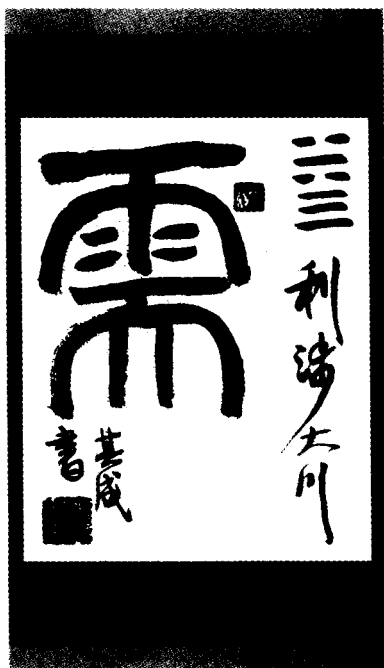 利涉大川
需
其成
書